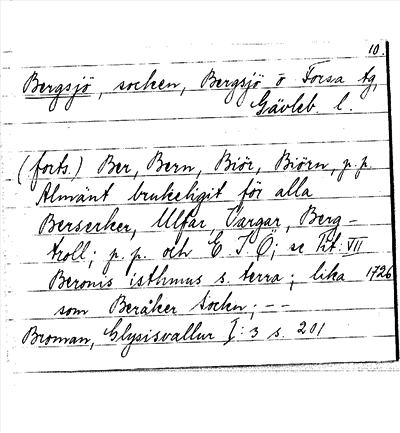 10.
Bergsjö, socken, Bergsjö o Forsa tg,
Gävleb. l.
(forts.) Ber, Bern, Biör, Biörn, p.p.
Almänt brukeligit för alla
Berserker, Ulfar Vargar, Berg-
troll; p.p. och E T Ö; se tit: VII
Beronis isthmus s. terra; lika 1726
som Beråker sockn; --
Broman, Glysisvallur I: 3 s. 201